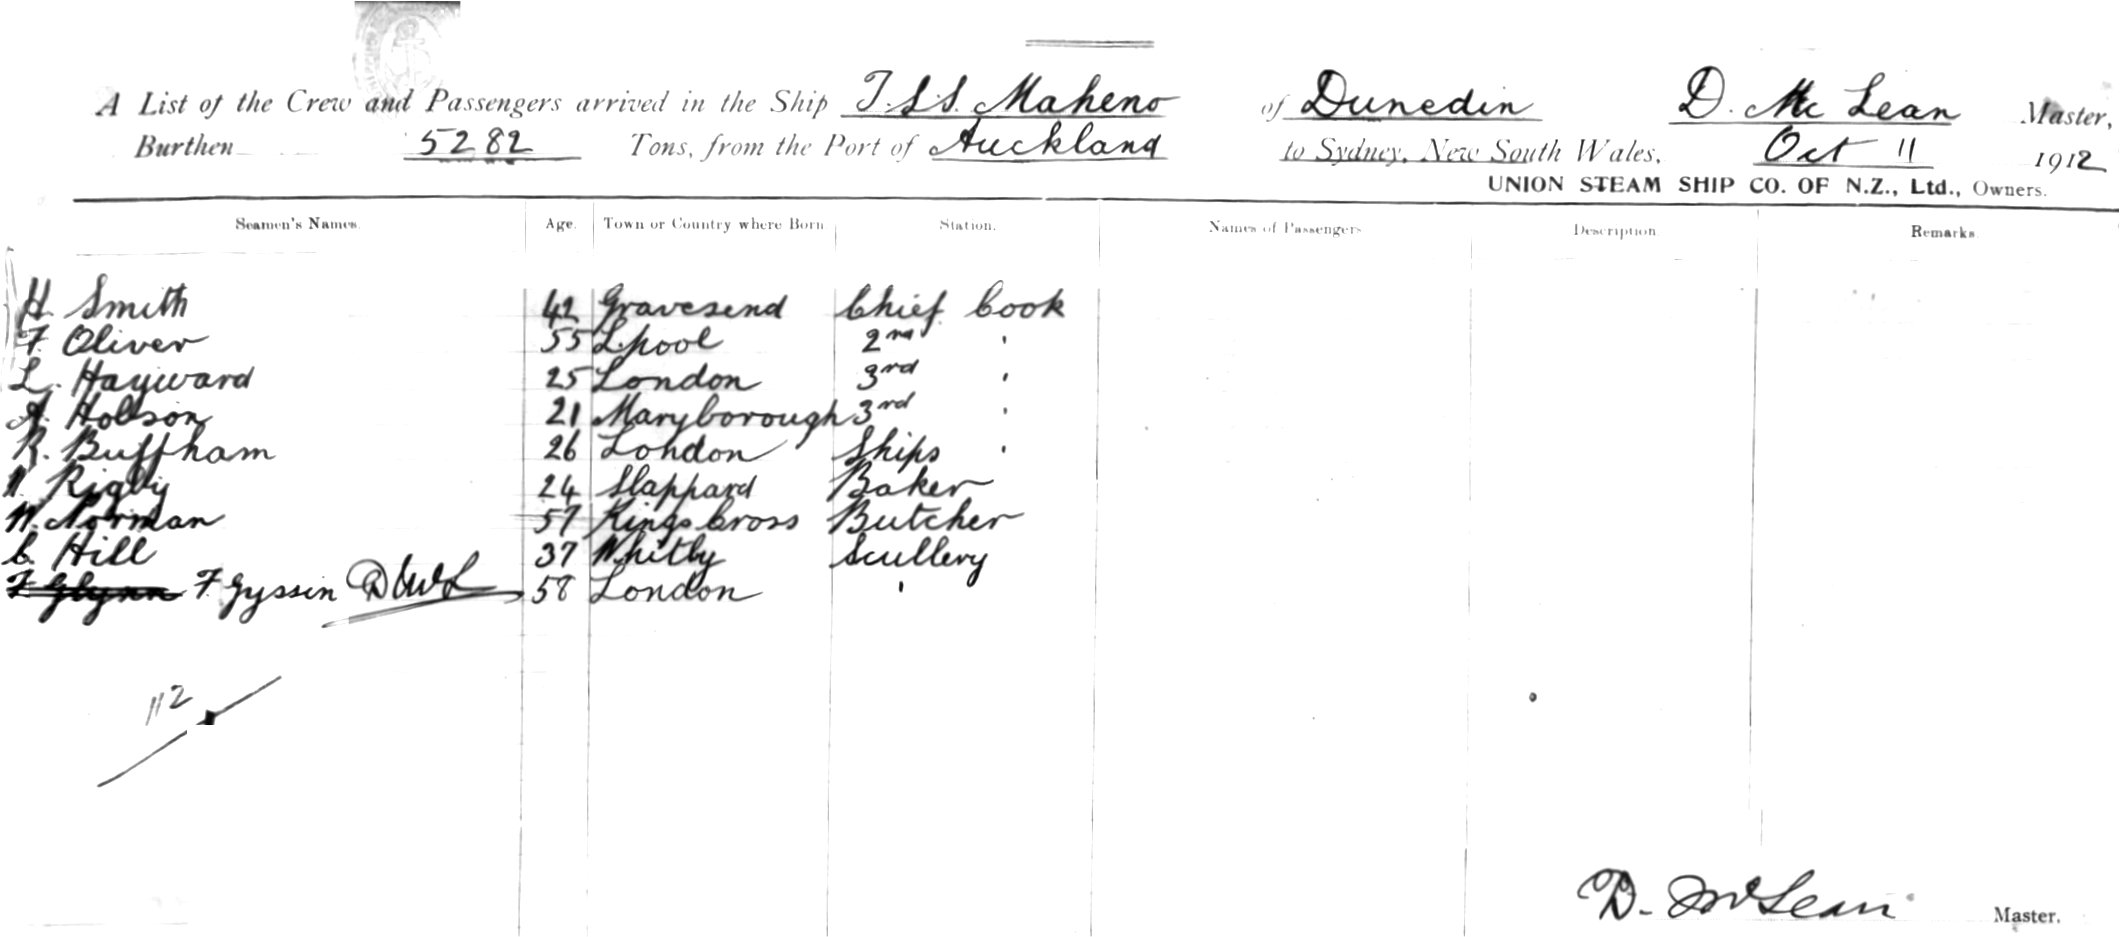 A List of the Crew and Passengers arrived in the Ship T.S.S. Maheno of Dunedin D. Mc Lean Master,
Burthen 5282 Tons, from the Port of Auckland to Sydney, New South Wales, Oct 11 1912
UNION STEAM SHIP CO. OF N.Z., Ltd., Owners.
Seamen's Names. Age. Town or Country where Born Station. Names of Passengers Description. Remarks.
H. Smith 42 Gravesend Chief Cook
F. Oliver 55 L.pool 2nd '
L. Hayward 25 London 3rd '
A. Hobson 21 Maryborough 3rd '
R. Buffham 26 London Ships '
Rigby 24 Slappard Baker
W. Norman 57 Kings Cross Butcher
C. Hill 37 Whitby Scullery
F Glynn F. Gyssin 58 London '
112
D. McLean Master.